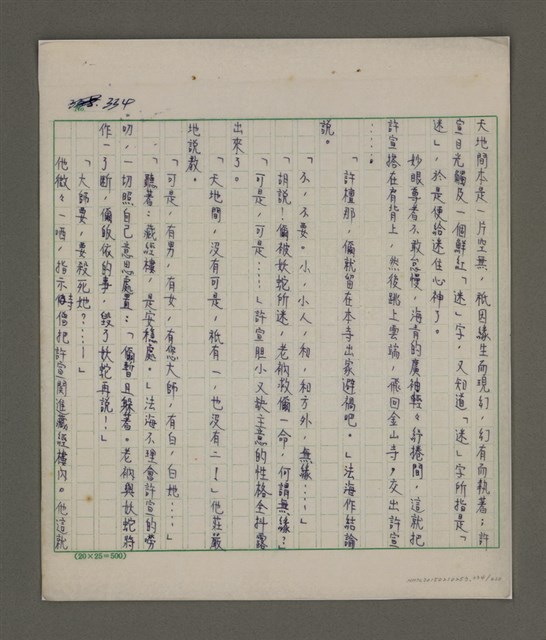 334
天地間本是一片空無，祇因緣生而現幻，幻有而執著；許
宣目光觸及一個鮮紅「迷」字，又知道「迷」字所指是「
迷」，於是便給迷住心神了。
妙眼尊者不敢怠慢，海青的廣袖輕々紓捲間，這就把
許宣搭在肩背上，然後跳上雲端，飛回金山寺，交出許宣
……。
「許檀那，儞就留在本寺出家避禍吧。」法海作結論
說。
「不，不要。小，小人，和，和方外，無緣……」
「胡說！儞被妖蛇所迷，老衲救儞一命，何謂無緣？」
「可是，可是……」許宣胆小又缺主意的性格全抖露
出來了。
「天地間，沒有可是，祇有一，也沒有二！」他莊嚴
地說教。
「可是，有男，有女，有您大師，有白，白她……」
「聽著：藏經樓，是安穩處。」法海不理會許宣的嘮
叨，一切照自己意思處置：「儞暫且躲著。老衲與妖蛇將
作一了斷，儞皈依的事，毀了妖蛇再說！」
「大師要，要殺死她？……」
他微々一哂，指示侍僧把許宣関進藏經樓內。他這就
(20×25=500)